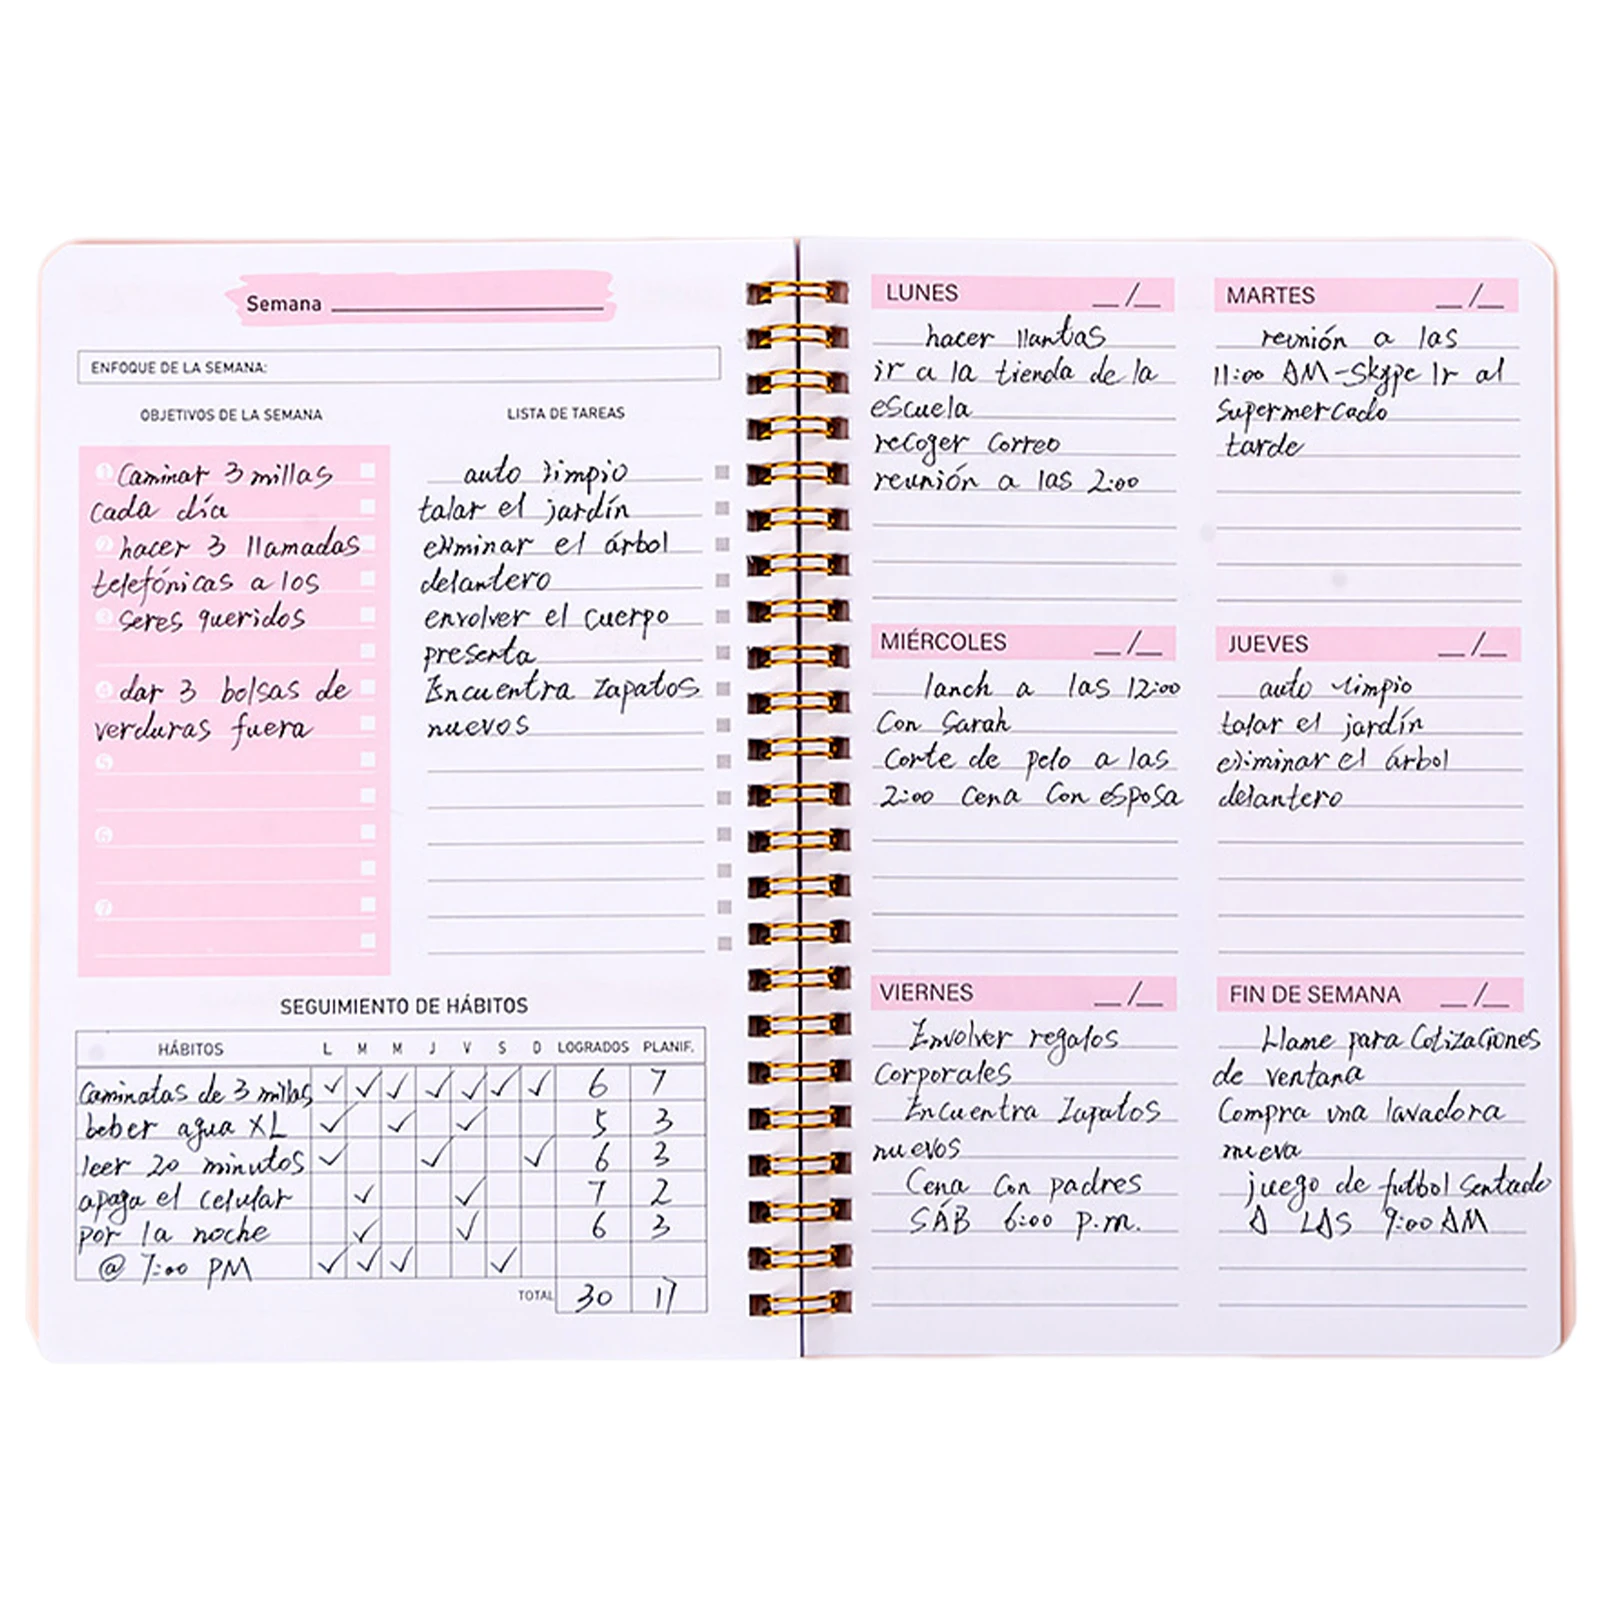 Semana
ENFOQUE DE LA SEMANA:
OBJETIVOS DE LA SEMANA
1 Caminar 3 millas
cada día
2 hacer 3 llamadas
telefónicas a los
3 seres queridos
4 dar 3 bolsas de
verduras fuera
5
6
7
LISTA DE TAREAS
auto limpio
talar el jardín
eliminar el árbol
delantero
envolver el cuerpo
presenta
Encuentra zapatos
nuevos
SEGUIMIENTO DE HÁBITOS
HÁBITOS L M M J V S D LOGRADOS PLANIF.
Caminatas de 3 millas ✓ ✓ ✓ ✓ ✓ ✓ ✓ 6 7
beber agua XL ✓ ✓ ✓ 5 3
leer 20 minutos ✓ ✓ ✓ 6 3
apaga el celular ✓ ✓ 7 2
por la noche ✓ ✓ 6 3
@ 7:00 PM ✓ ✓ ✓ ✓
TOTAL 30 17
LUNES __/__
hacer llantas
ir a la tienda de la
escuela
recoger Correo
reunión a las 2:00
MARTES __/__
reunión a las
11:00 AM-Skype Ir al
Supermercado
tarde
MIÉRCOLES __/__
lanch a las 12:00
Con Sarah
Corte de pelo a las
2:00 Cena Con esposa
JUEVES __/__
auto limpio
talar el jardín
eliminar el árbol
delantero
VIERNES __/__
Envolver regalos
Corporales
Encuentra Zapatos
nuevos
Cena Con padres
SÁB 6:00 p.m.
FIN DE SEMANA __/__
Llame para Cotizaciones
de ventana
Compra una lavadora
nueva
juego de futbol Sentado
A LAS 9:00 AM